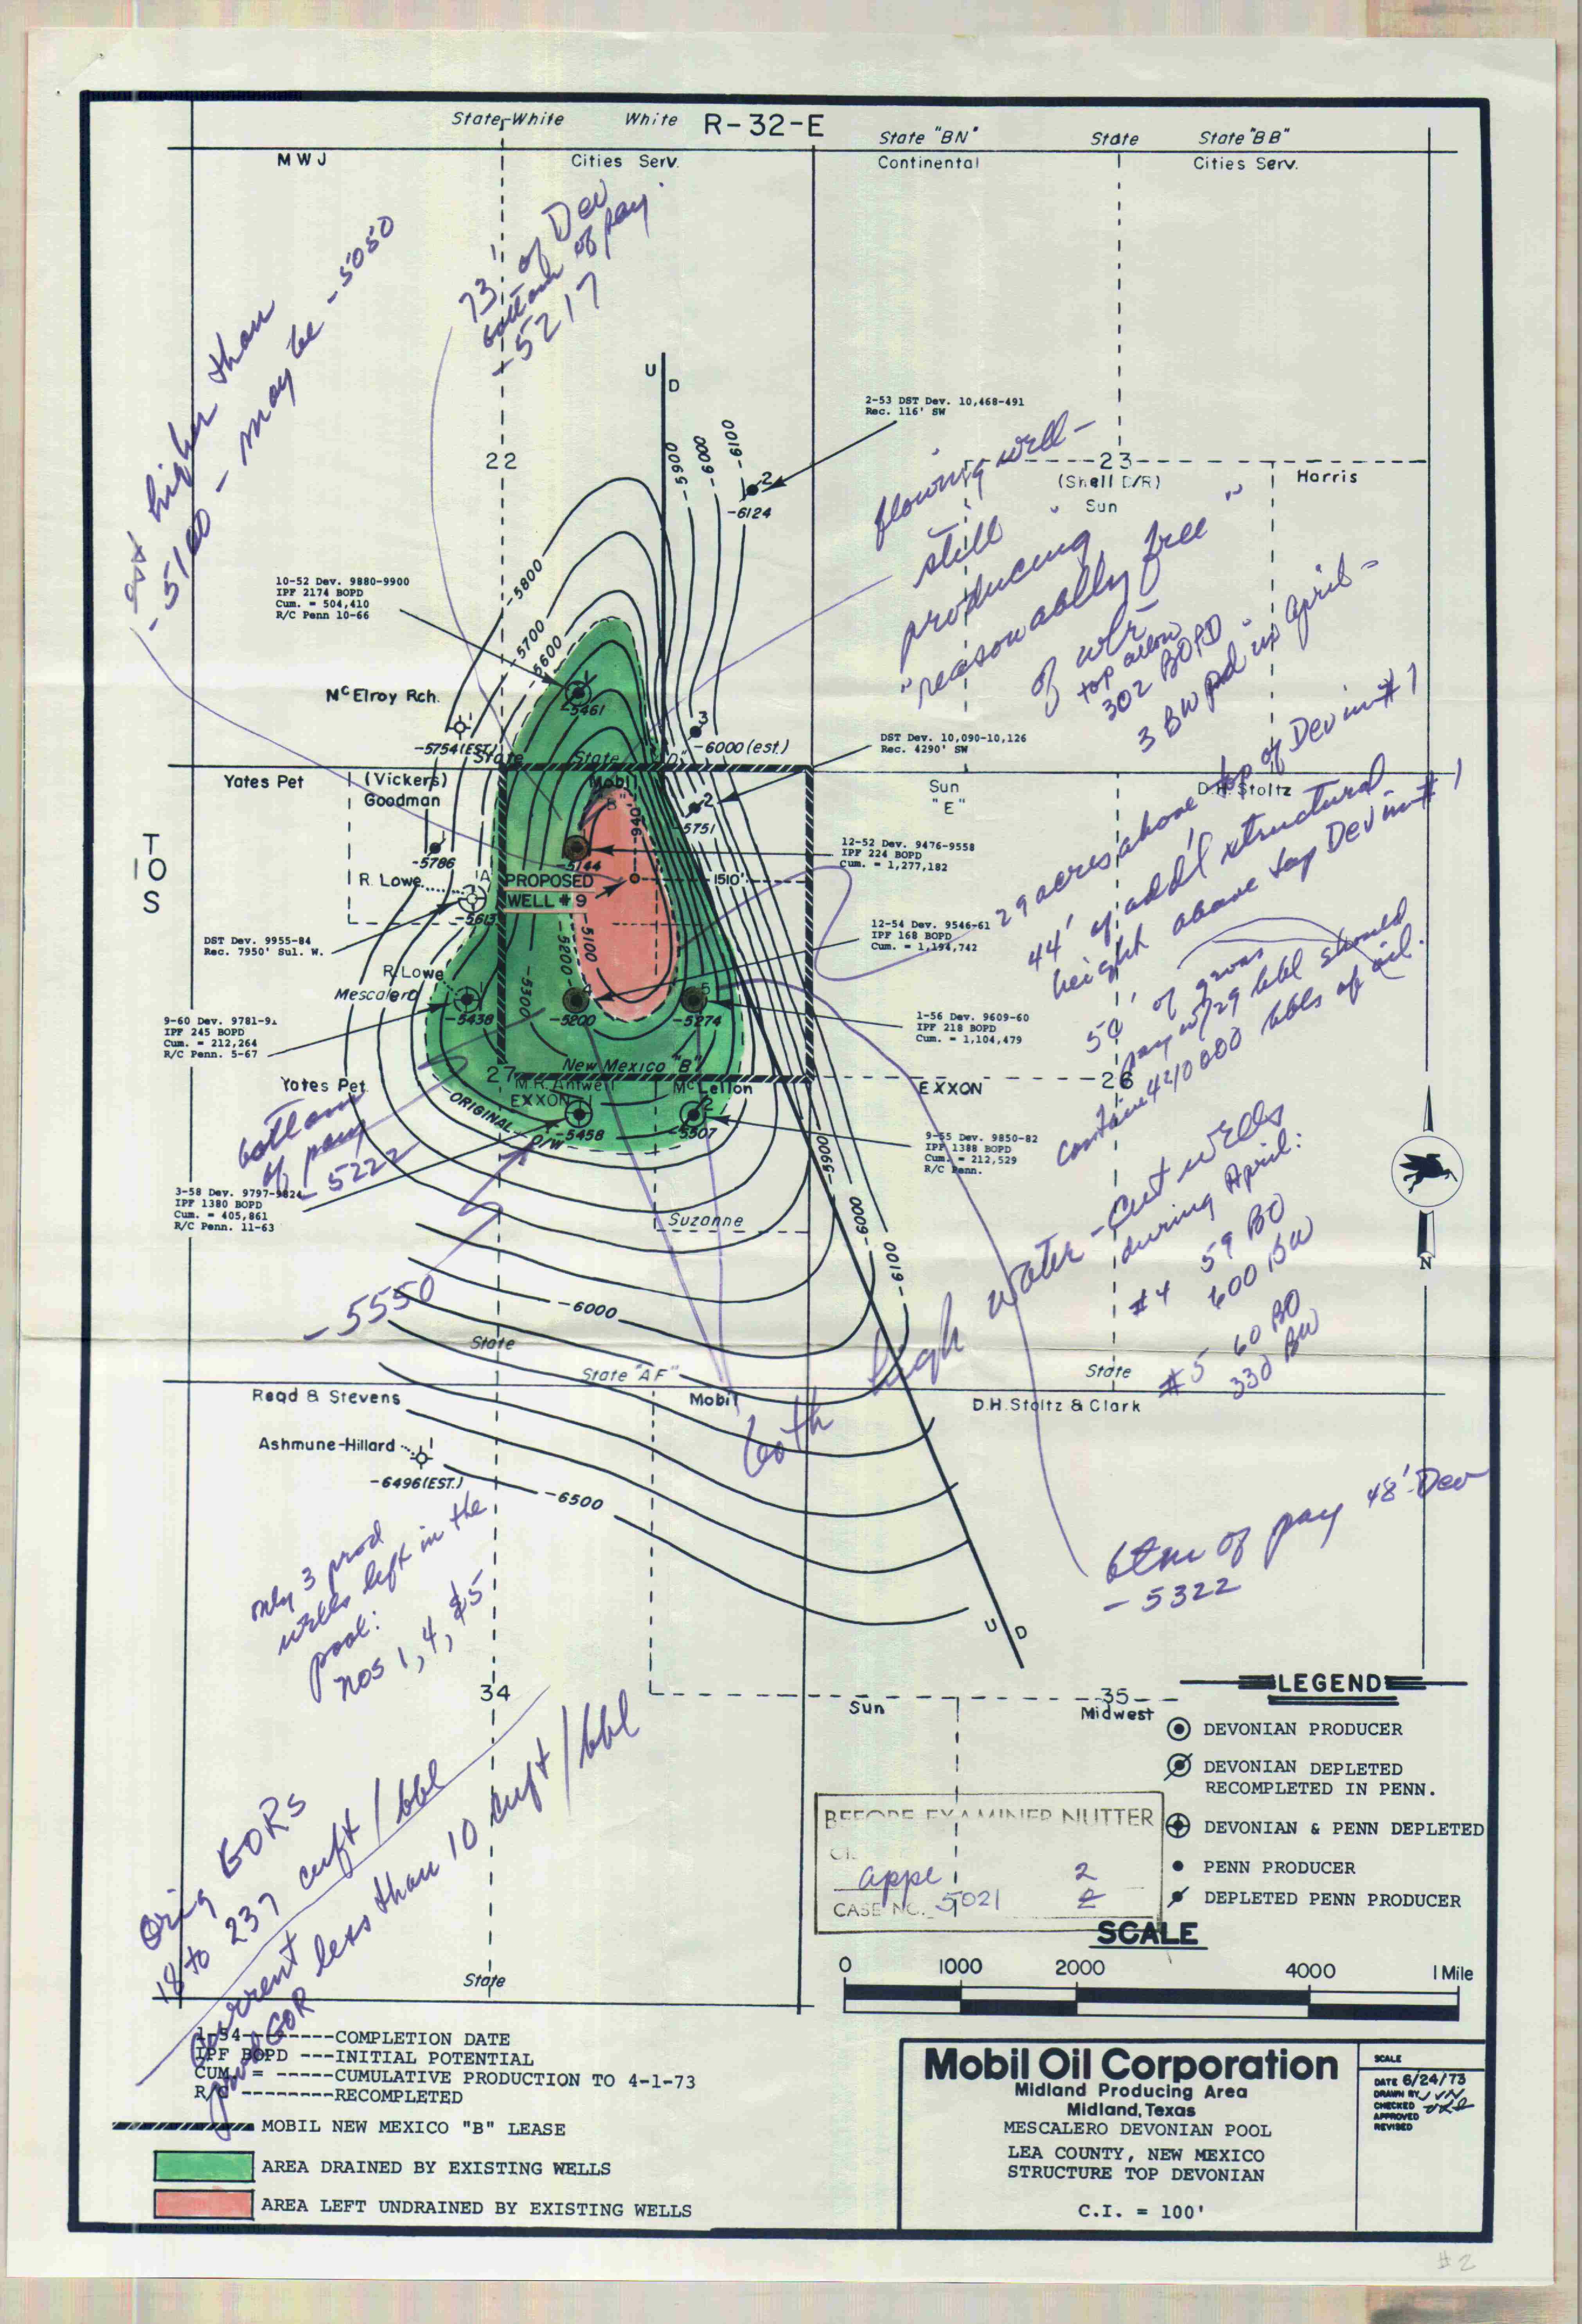 R-32-E
State-White
White
State "BN"
State
State "BB"
MWJ
Cities Serv.
Continental
Cities Serv.
73' of Dev
bottom of pay.
-5217
est higher than
-5160 - may be -5050
U
D
2-53 DST Dev. 10,468-491
Rec. 116' SW
22
-5900
-6000
-6100
2
-6124
23
(Shell D/R)
Sun
Harris
flowing well -
still
producing
"reasonably free"
of wtr
top allow
302 BOPD
3 BW pd in April -
10-52 Dev. 9880-9900
IPF 2174 BOPD
Cum. = 504,410
R/C Penn 10-66
-5800
-5700
-5600
McElroy Rch.
-5461
1
-5754(EST.)
3
-6000(est.)
DST Dev. 10,090-10,126
Rec. 4290' SW
State
State "D"
Yates Pet
(Vickers)
Goodman
Mobil
"B"
Sun
"E"
D.H. Stoltz
T
10
S
2
-5751
-5786
-5144
940'
12-52 Dev. 9476-9558
IPF 224 BOPD
Cum. = 1,277,182
29 acres above top of Dev in #1
44' of add'l structural
height above top Dev in #1
R. Lowe
A
PROPOSED
WELL #9
1510'
-5613
DST Dev. 9955-84
Rec. 7950' Sul. W.
12-54 Dev. 9546-61
IPF 168 BOPD
Cum. = 1,194,742
-5100
-5200
-5300
50' of gross
pay w/29 bbl should
contain 440000 bbls of oil.
R. Lowe
Mescalero
1
-5438
4
-5200
5
-5274
9-60 Dev. 9781-91
IPF 245 BOPD
Cum. = 212,264
R/C Penn. 5-67
1-56 Dev. 9609-60
IPF 218 BOPD
Cum. = 1,104,479
New Mexico "B"
27
M.R. Antweil
McLellon
EXXON
26
Yates Pet.
EXXON
1
-5458
2
-5307
ORIGINAL O/W
9-55 Dev. 9850-82
IPF 1388 BOPD
Cum. = 212,529
R/C Penn.
bottom
of pay
-5222
3-58 Dev. 9797-9824
IPF 1380 BOPD
Cum. = 405,861
R/C Penn. 11-63
-5900
-6000
-6100
Suzanne
-5550
both high water-cut wells
during April:
#4 59 BO
600 BW
#5 60 BO
330 BW
N
-6000
State
State "AF"
State
Read & Stevens
Mobil
D.H. Stoltz & Clark
Ashmune-Hillard
1
-6496(EST.)
-6500
btm of pay 48' Dev
-5322
only 3 prod
wells left in the
pool:
nos 1, 4, & 5
U
D
34
35
Sun
Midwest
Orig GORs
18 to 237 cuft/bbl
Current
prod GOR less than 10 cuft/bbl
State
LEGEND
DEVONIAN PRODUCER
DEVONIAN DEPLETED
RECOMPLETED IN PENN.
DEVONIAN & PENN DEPLETED
PENN PRODUCER
DEPLETED PENN PRODUCER
BEFORE EXAMINER NUTTER
appl
2
CASE NO. 5021
2
SCALE
0
1000
2000
4000
1 Mile
1-54-------COMPLETION DATE
IPF BOPD ---INITIAL POTENTIAL
CUM. = -----CUMULATIVE PRODUCTION TO 4-1-73
R/C --------RECOMPLETED
MOBIL NEW MEXICO "B" LEASE
AREA DRAINED BY EXISTING WELLS
AREA LEFT UNDRAINED BY EXISTING WELLS
Mobil Oil Corporation
Midland Producing Area
Midland, Texas
MESCALERO DEVONIAN POOL
LEA COUNTY, NEW MEXICO
STRUCTURE TOP DEVONIAN
C.I. = 100'
SCALE
DATE 6/24/73
DRAWN BY JVN
CHECKED
APPROVED
REVISED
#2